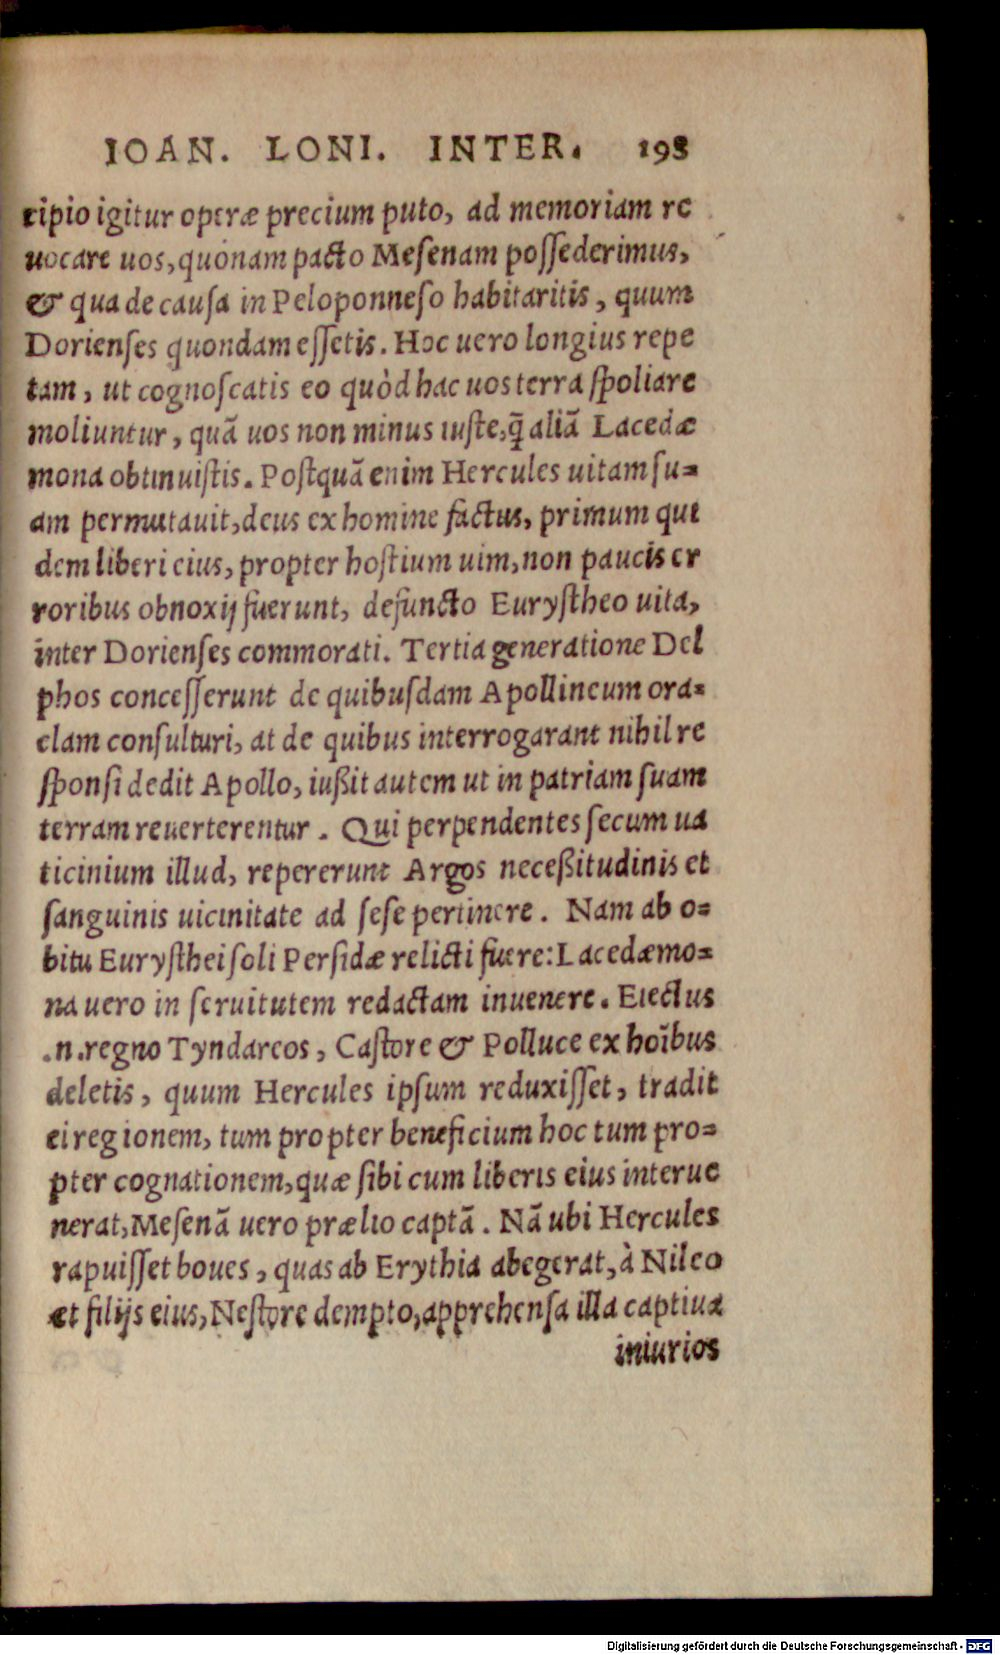 IOAN. LONI. INTER. 198
cipio igitur operæ precium puto, ad memoriam re
uocare uos, quónam pacto Meſenam poſſederimus,
& qua de cauſa in Peloponneſo habitaritis, quum
Dorienſes quondam eſſetis. Hoc uero longius repe
tam, ut cognoſcatis eo quòd hac uos terra ſpoliare
moliuntur, quã uos non minus iuſte, q̃ aliã Lacedæ
mona obtinuiſtis. Poſtquã enim Hercules uitam ſu=
am permutauit, deus ex homine factus, primum qui
dem liberi eius, propter hoſtium uim, non paucis er
roribus obnoxij fuerunt, defuncto Euryſtheo uita,
inter Dorienſes commorati. Tertia generatione Del
phos conceſſerunt de quibuſdam Apollineum ora=
clam conſulturi, at de quibus interrogarant nihil re
ſponſi dedit Apollo, iußit autem ut in patriam ſuam
terram reuerterentur. Qui perpendentes ſecum ua
ticinium illud, repererunt Argos neceßitudinis et
ſanguinis uicinitate ad ſeſe pertinere. Nam ab o=
bitu Euryſthei ſoli Perſidæ relicti fuere: Lacedæmo=
na uero in ſeruitutem redactam inuenere. Eiectus
.n. regno Tyndareos, Caſtore & Polluce ex hoĩbus
deletis, quum Hercules ipſum reduxiſſet, tradit
ei regionem, tum propter beneficium hoc tum pro=
pter cognationem, quæ ſibi cum liberis eius interue
nerat, Meſenã uero prælio captã. Nã ubi Hercules
rapuiſſet boues, quas ab Erythia abegerat, à Nileo
æt filijs eius, Neſtore dempto, apprehenſa illa captiua
iniurios
Digitalisierung gefördert durch die Deutsche Forschungsgemeinschaft - DFG